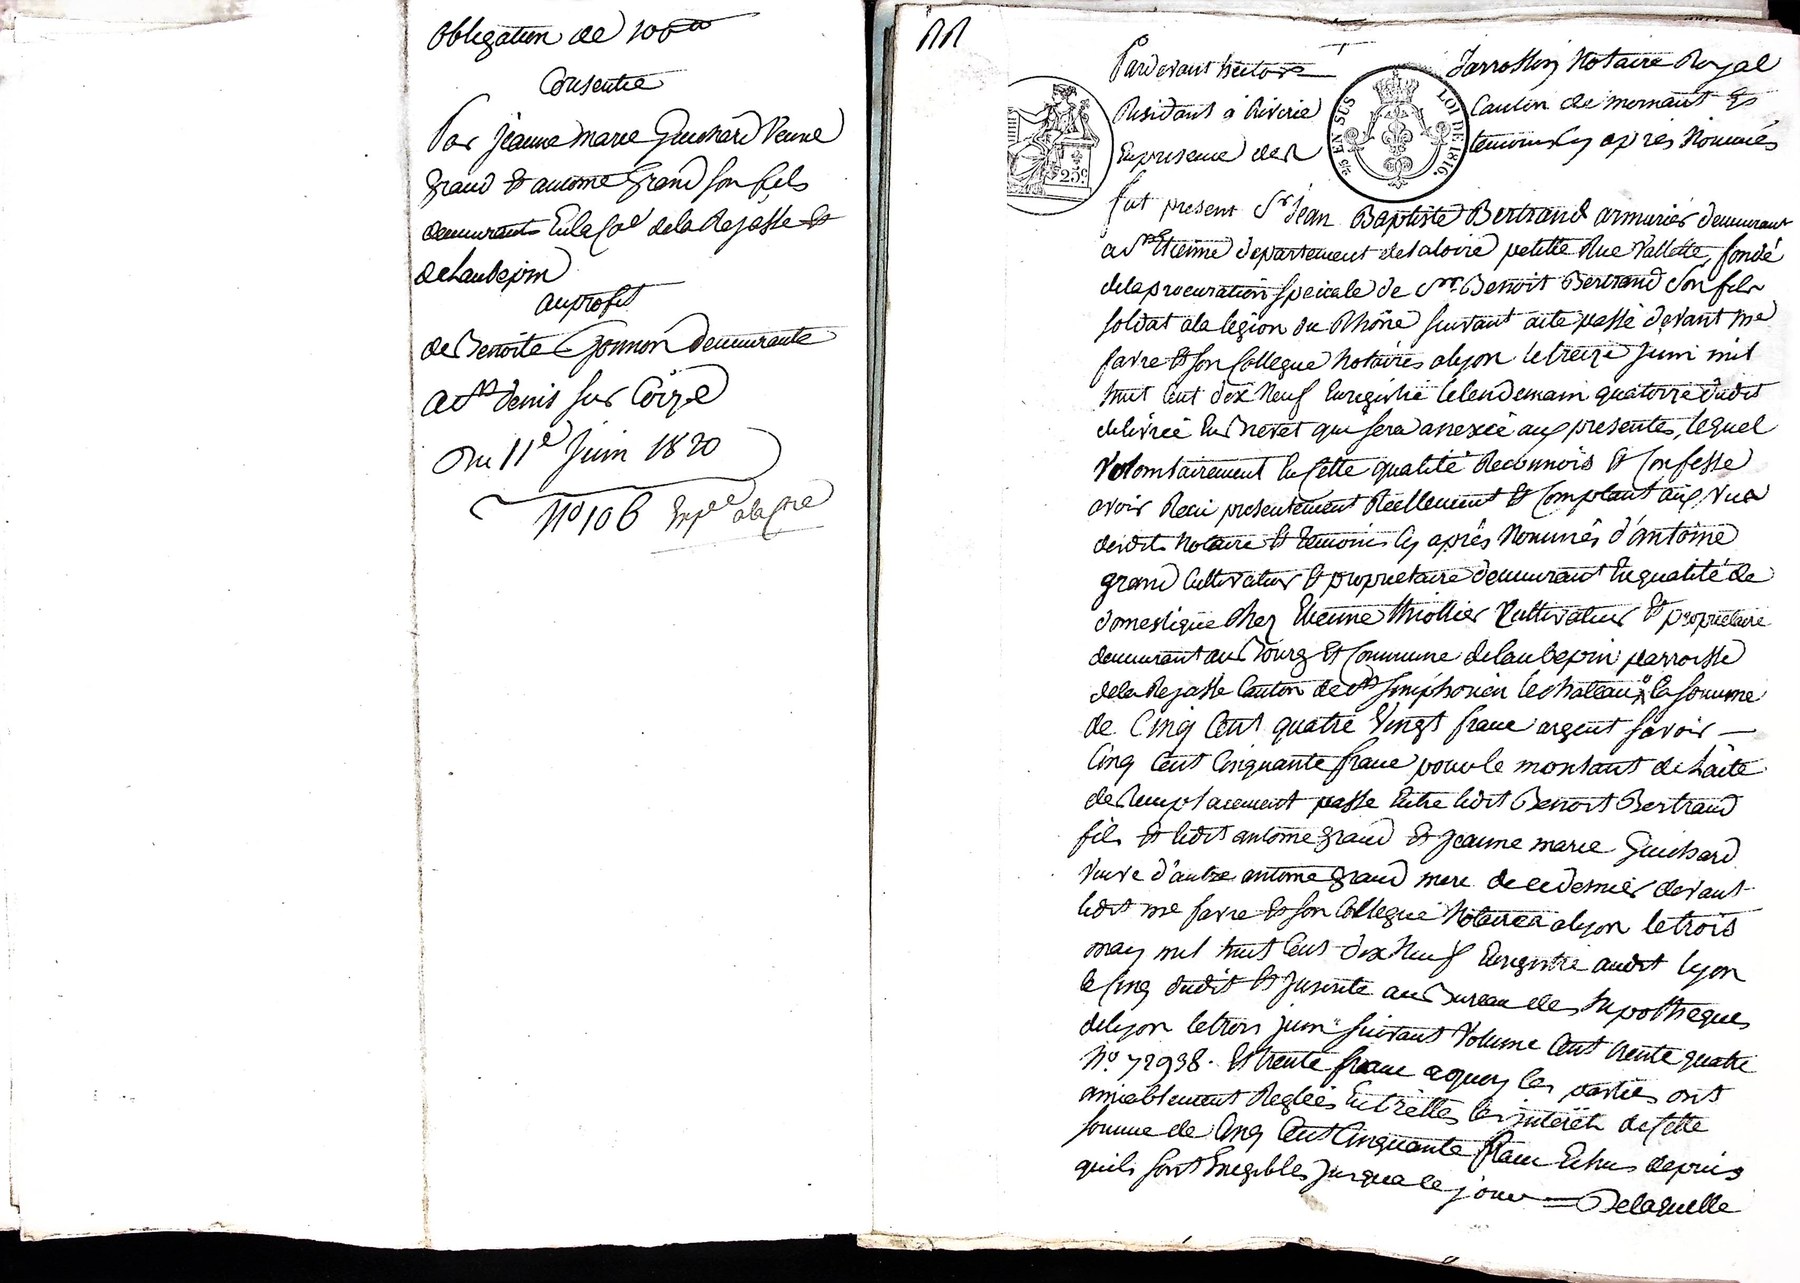 Obligation de 100
Consentie
Par jeanne marie Guichard Veuve
grand et antoine Grand son fils
demeurants En la Coe de la Rajasse et
de Laubepin
au profit
de Benoite Gonnon demeurante
a St denis sur Coize
Du 11e Juin 1820
No 106 Expe a la cre
Pardevant hector Jarrossin Notaire Royal
Residant a Riverie Canton de mornant Et
En presence des temoins Cy après Nommés
25c
25 EN SUS LOI DE 1816.
fut present Sr jean Baptiste Bertrand armurier demeurant
a St Etienne departement de la loire petitte Rue Vallette, fondé
de la procuration speciale de Sr Benoit Bertrand Son fils
soldat a la legion du Rhône suivant acte passé devant me
favre et son Collegue Notaires a lyon le treize juin mil
huit Cent dix Neuf Enregistré le lendemain quatorze dudit
delivrée En Brevet qui sera anexée aux presentes, lequel
Volomtairement En Cette qualité Reconnois et Confesse
avoir Recu presentement Réellement et Comptant aux vues
desdits Notaire et temoins Cy après Nommés d'antoine
grand Cultivateur et proprietaire demeurant En qualité de
domestique chez Etienne thiollier Cultivateur et proprietaire
demeurant au Bourg et Commune de laubepin parroisse
de la Rajasse Canton de St simphorien le chateau, la somme
de Cinq Cent quatre Vingt franc argent savoir —
Cinq Cent Cinquante franc pour le montant de Lacte
de Remplacement passé Entre ledit Benoit Bertrand
fils et ledit antoine grand et jeanne marie Guichard
veuve d'autre antoine grand mere de ce dernier devant
ledit me favre et son Collegue Notaires a lyon le trois
may mil huit Cent dix Neuf Enregistré audit lyon
le Cinq dudit et Inscrite au Bureau des hypotheques
de lyon le trois juin suivant Volume Cent trente quatre
No 72938. Et trente franc a quoy les parties ont
amiablement Reglées Entr'elles les interêts de Cette
somme de Cinq Cent Cinquante franc Echus depuis
quils sont Exigibles jusqua ce jour = De laquelle